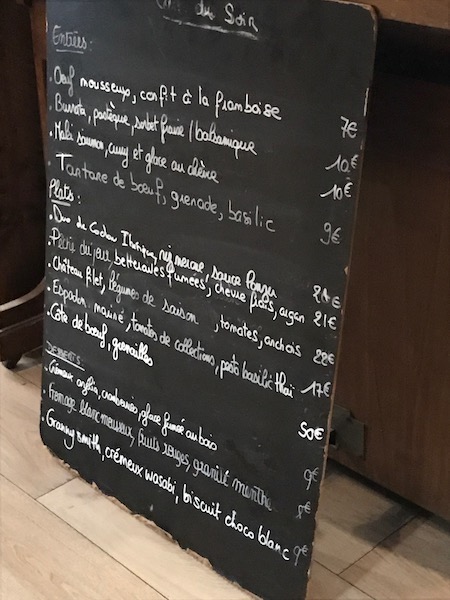 du Soir
Entrées :
. Oeuf mousseux, confit à la framboise 7€
. Burrata, pastèque, sorbet fraise / balsamique 10€
. Maki saumon, curry et glace au chèvre 10€
. Tartare de boeuf, grenade, basilic 9€
Plats :
. Duo de Cochon Ibérique, sauce 20€
. Pêche du jour, betteraves fumées, chèvre frais, 21€
. Château filet, légumes de saison , tomates, anchois 22€
. Espadon mariné, tomates de collections, pesto basilic thaï 17€
. Côte de boeuf, grenailles 50€
DESSERTS
. Crémeux glace fumé au bois 9€
. Fromage blanc meuveux, fruits rouges, granité menthe 8€
. Granny smith, crémeux wasabi, biscuit choco blanc 9€